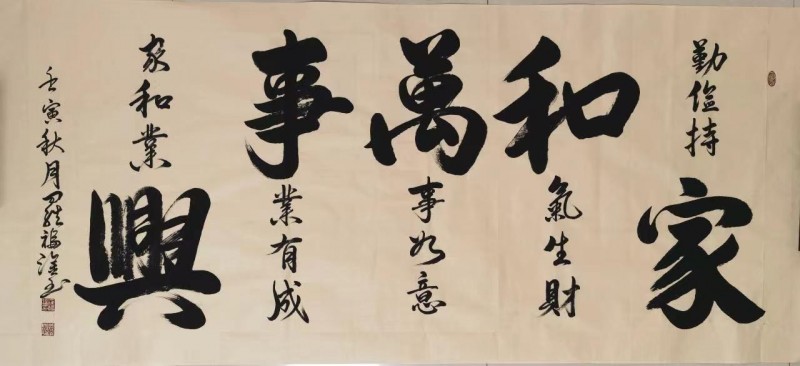 勤俭持家
和氣生財
萬事如意
事業有成
家和業興
壬寅秋月羅福書